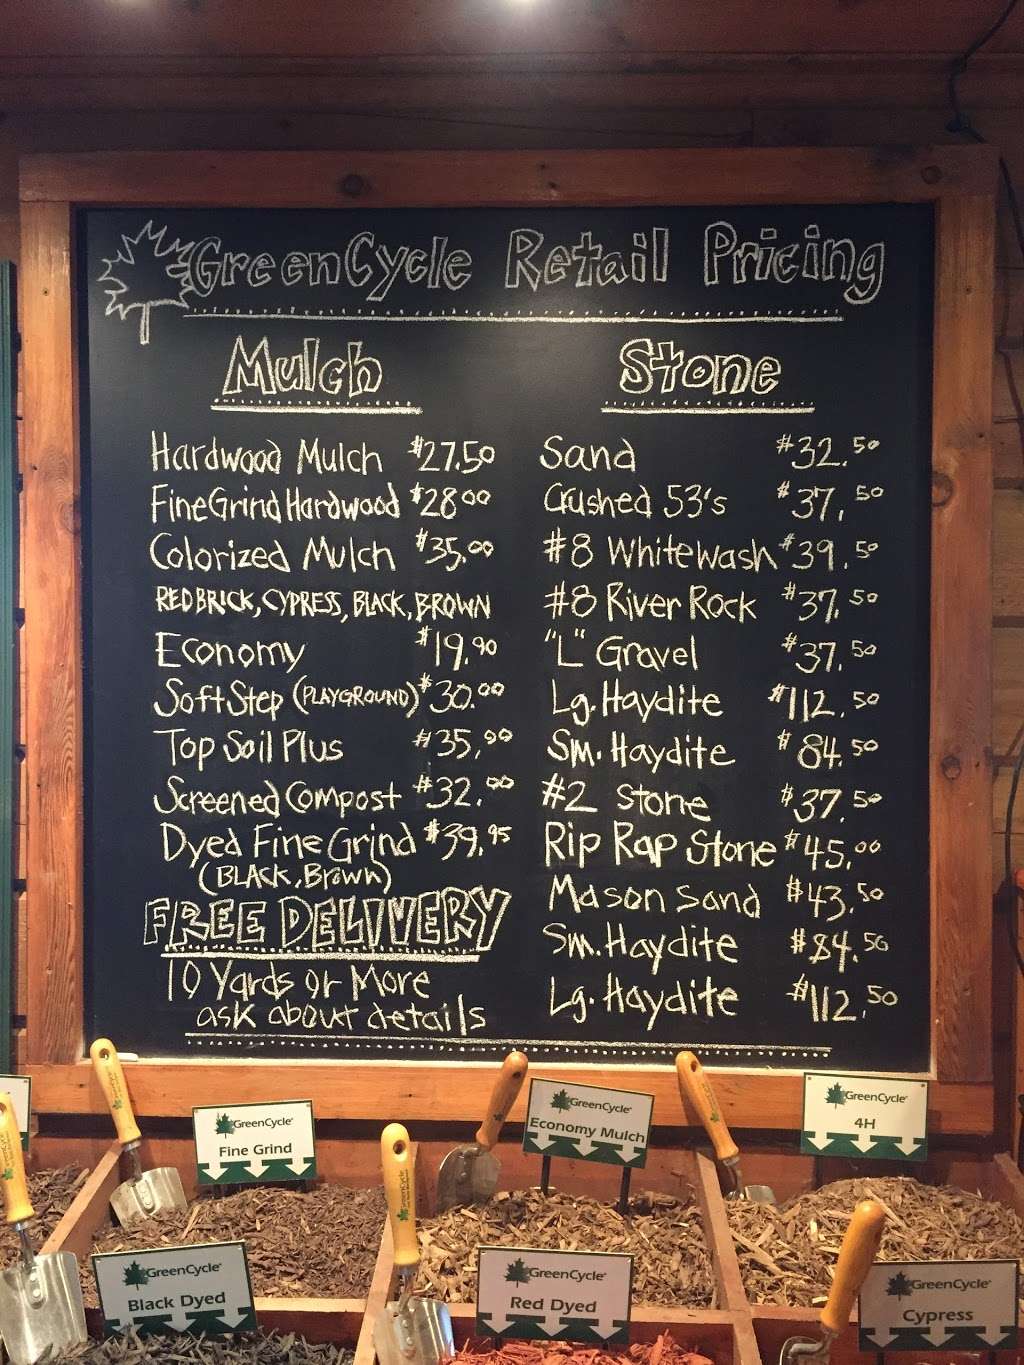 GreenCycle Retail Pricing
Mulch
Hardwood Mulch $27.50
Fine Grind Hardwood $28.00
Colorized Mulch $35.00
RED BRICK, CYPRESS, BLACK, BROWN
Economy $19.90
Soft Step (PLAYGROUND) $30.00
Top Soil Plus $35.00
Screened Compost $32.00
Dyed Fine Grind $39.95
(BLACK, Brown)
FREE DELIVERY
10 Yards or More
ask about details
Stone
Sand $32.50
Crushed 53's $37.50
#8 Whitewash $39.50
#8 River Rock $37.50
"L" Gravel $37.50
Lg. Haydite $112.50
Sm. Haydite $84.50
#2 Stone $37.50
Rip Rap Stone $45.00
Mason Sand $43.50
Sm. Haydite $84.50
Lg. Haydite $112.50
GreenCycle
Fine Grind
GreenCycle
Economy Mulch
GreenCycle
4H
GreenCycle
Black Dyed
GreenCycle
Red Dyed
GreenCycle
Cypress